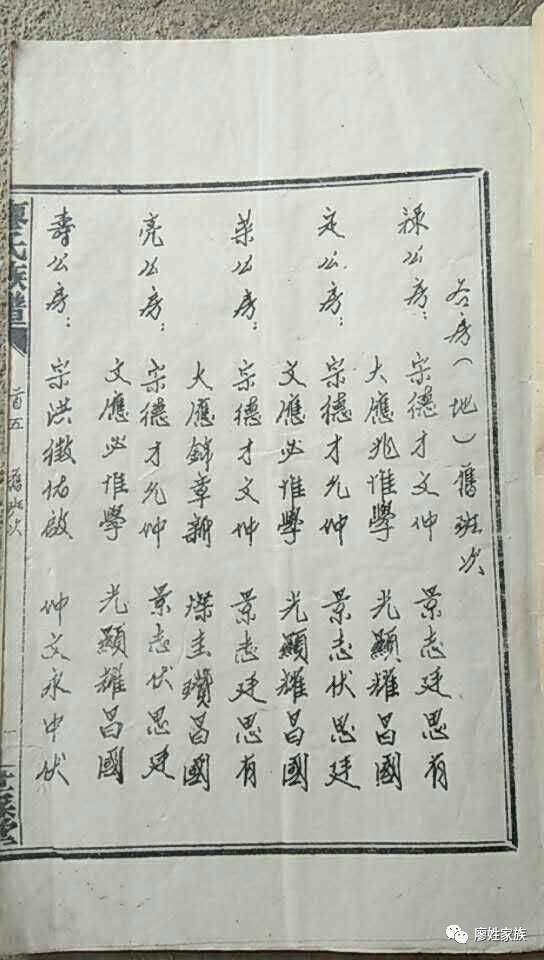 各房（地）舊班次
祿公房：宗德才文仲 景志廷思有
大應兆惟學 光顯耀昌國
定公房：宗德才允仲 景志伏思廷
文應必惟學 光顯耀昌國
榮公房：宗德才文仲 景志廷思有
大應錦章新 燦圭瓚昌國
亮公房：宗德才允仲 景志伏思廷
文應必惟學 光顯耀昌國
壽公房：宗洪徵佑啟 仲文永中伏
廖氏族譜 首五 舊班次 一
廖姓家族